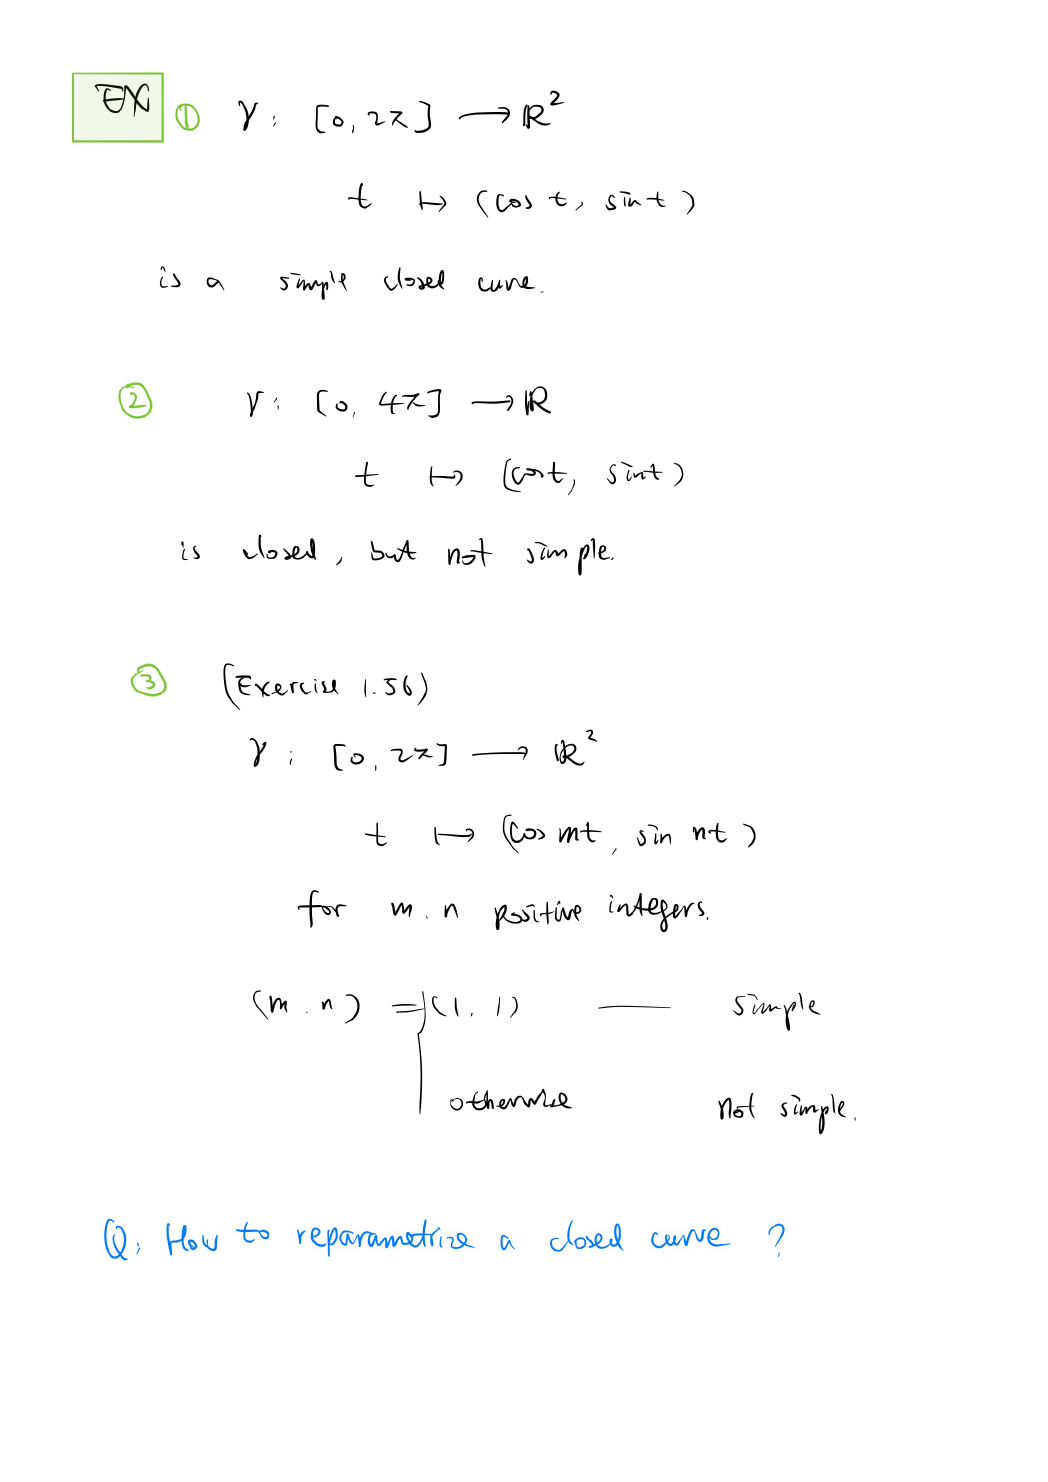 EX ① γ : [0, 2π] → ℝ²
t ↦ (cos t, sin t)
is a simple closed curve.
② γ : [0, 4π] → ℝ
t ↦ (cos t, sin t)
is closed, but not simple.
③ (Exercise 1.56)
γ : [0, 2π] → ℝ²
t ↦ (cos mt, sin nt)
for m.n positive integers.
(m.n) = { (1, 1) — simple
otherwise not simple.
Q: How to reparametrize a closed curve ?